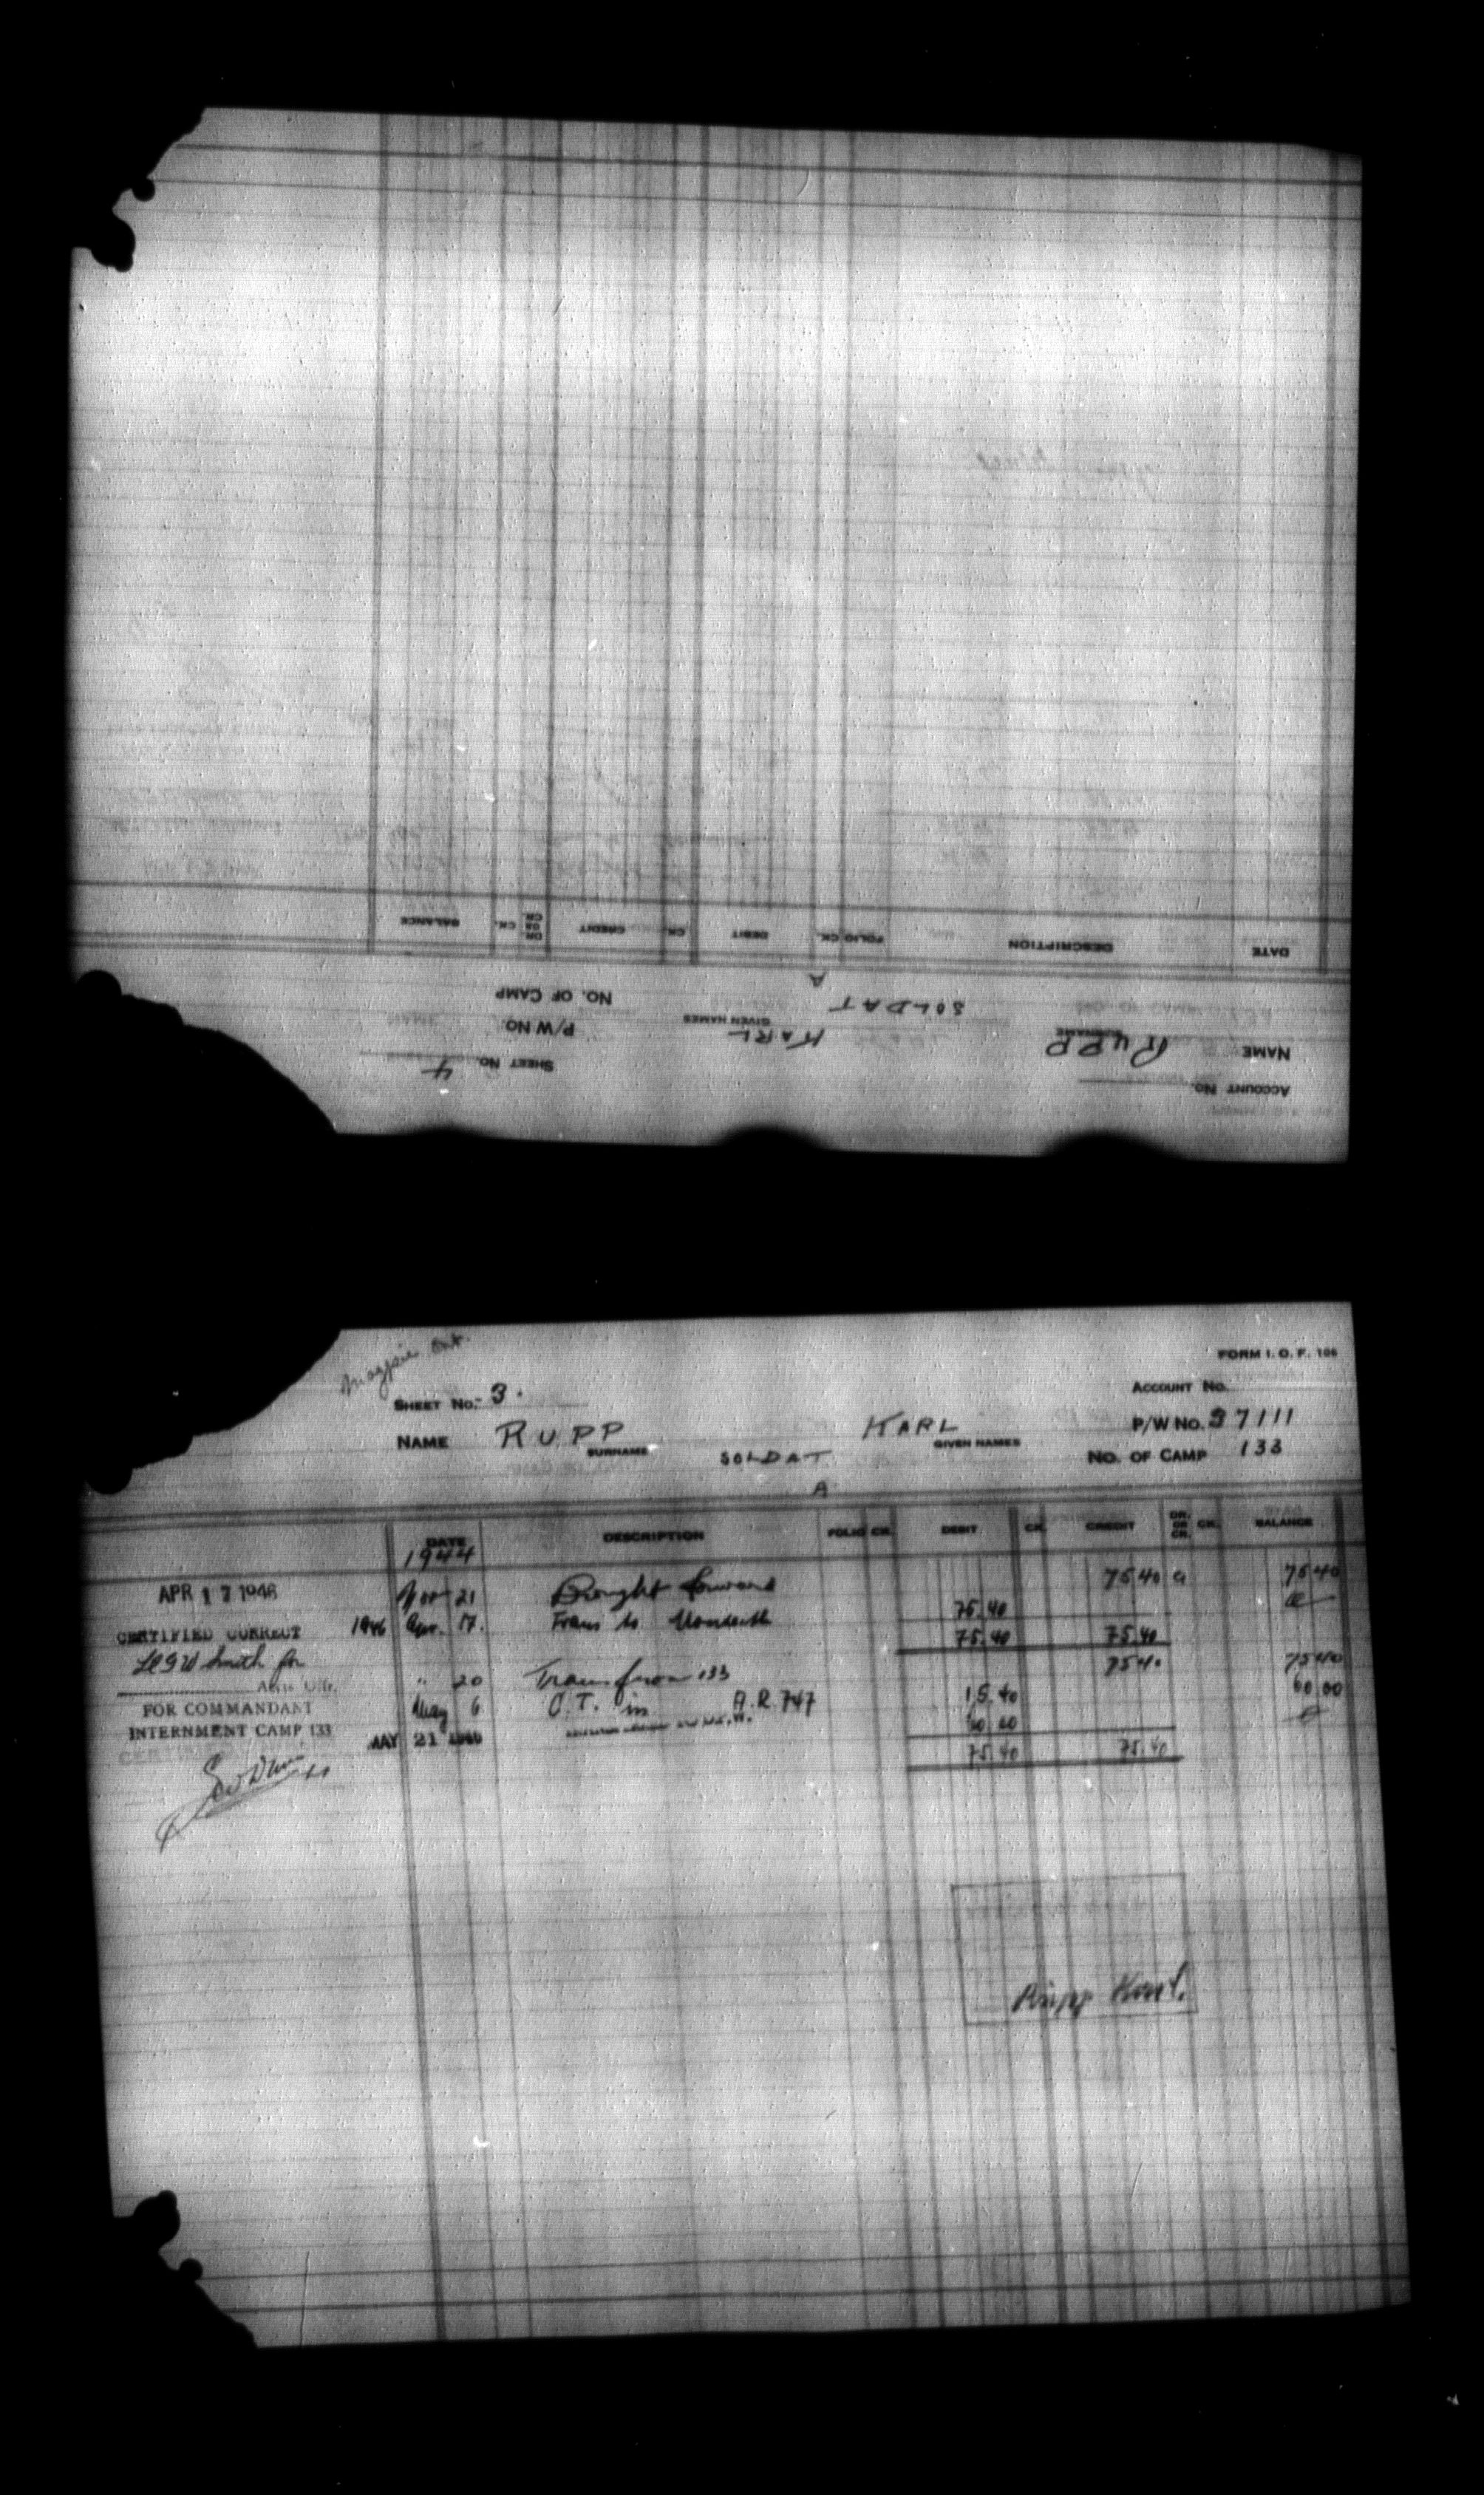 ACCOUNT No.
SHEET No. 4
NAME RUPP SURNAME KARL GIVEN NAMES P/W No.
SOLDAT NO. OF CAMP
A
DATE DESCRIPTION FOLIO CK. DEBIT CK. CREDIT DR. OR CR. CK. BALANCE
Magpie Ont.
FORM I. O. F. 106
SHEET No. 3. ACCOUNT No.
NAME RUPP SURNAME KARL GIVEN NAMES P/W No. 37111
SOLDAT NO. OF CAMP 133
A
DATE DESCRIPTION FOLIO CK. DEBIT CK. CREDIT DR. OR CR. CK. BALANCE
1944
APR 17 1946 Nov 21 Brought forward 75.40 75.40
CERTIFIED CORRECT 1946 Apr. 17. Trans to Monteith 75.40
75.40 75.40
Smith for
" 20 Trans from 133 75.40 75.40
FOR COMMANDANT May 6 O.T. in A.R. 747 15.40 60.00
INTERNMENT CAMP 133 MAY 21 1946 60.00
75.40 75.40
Rupp Karl.